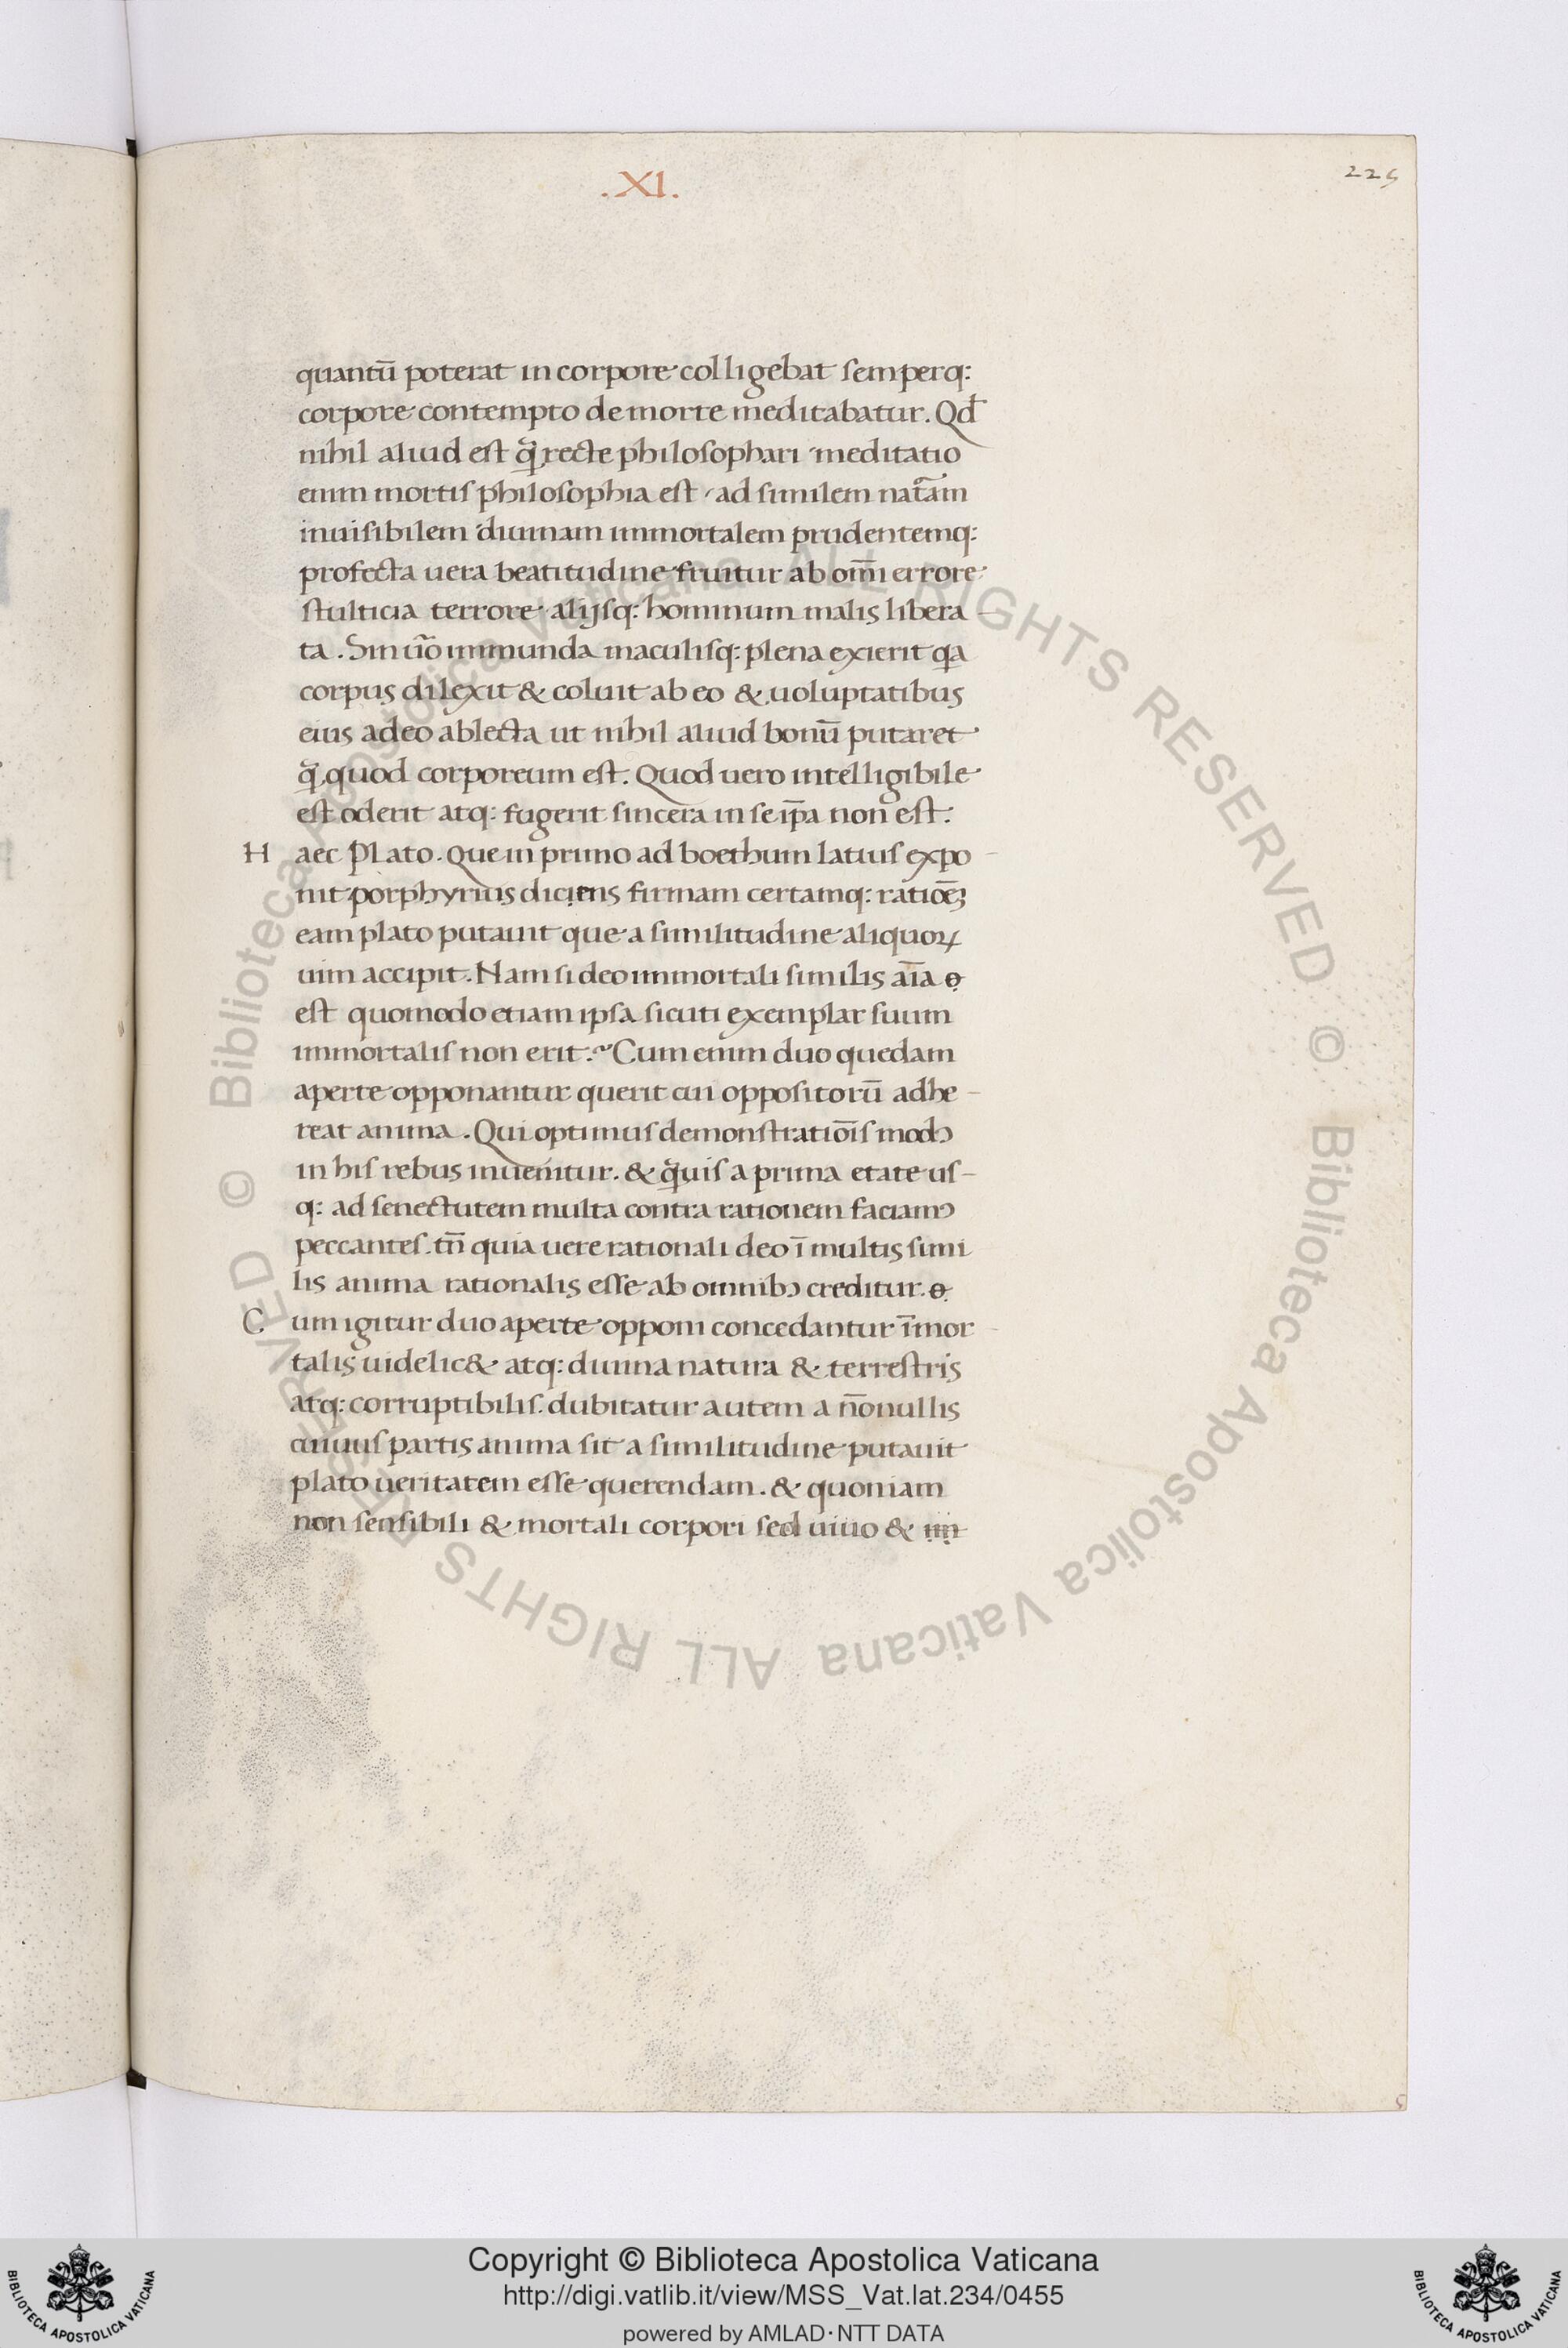 .XI.
225
quantū poterat in corpore colligebat semperq:
corpore contempto de morte meditabatur. Qd̄
nihil aliud est q̄ recte philosophari meditatio
enim mortis philosophia est, ad similem nat̄am
inuisibilem diuinam immortalem prudentemq:
profecta uera beatitudine fruitur ab om̄i errore
stulticia terrore alijsq: hominum malis libera-
ta. Sin ūo immunda maculisq: plena exierit qa
corpus dilexit & coluit ab eo & uoluptatibus
eius adeo ablecta ut nihil aliud bonū putaret
q̄ quod corporeum est. Quod uero intelligibile
est oderit atq: fugerit sincera in se ip̄a non est.
Haec Plato. Que in primo ad boethum latius expo-
nit porphyrius diciens firmam certamq: ratiōeʒ
eam plato putauit que a similitudine aliquoꝝ
uim accipit. Nam si deo immortali similis aīa ꝋ
est quomodo etiam ipsa sicuti exemplar suum
immortalis non erit? Cum enim duo quedam
aperte opponantur querit cui oppositorū adhe-
reat anima. Qui optimus demonstratiōis modꝰ
in his rebus inuenitur. & q̄uis a prima etate us-
q: ad senectutem multa contra rationem faciamꝰ
peccantes. tn̄ quia uere rationali deo ī multis simi
lis anima rationalis esse ab omnibꝰ creditur. ꝋ
Cum igitur duo aperte opponi concedantur īmor-
talis uidelic& atq: diuina natura & terrestris
atq: corruptibilis. dubitatur autem a n̄onullis
cuiuus partis anima sit a similitudine putauit
plato ueritatem esse querendam. & quoniam
non sensibili & mortali corpori sed uiuo & im
© Biblioteca Apostolica Vaticana ALL RIGHTS RESERVED © Biblioteca Apostolica Vaticana ALL RIGHTS RESERVED
BIBLIOTECA APOSTOLICA VATICANA
Copyright © Biblioteca Apostolica Vaticana
http://digi.vatlib.it/view/MSS_Vat.lat.234/0455
powered by AMLAD·NTT DATA
BIBLIOTECA APOSTOLICA VATICANA